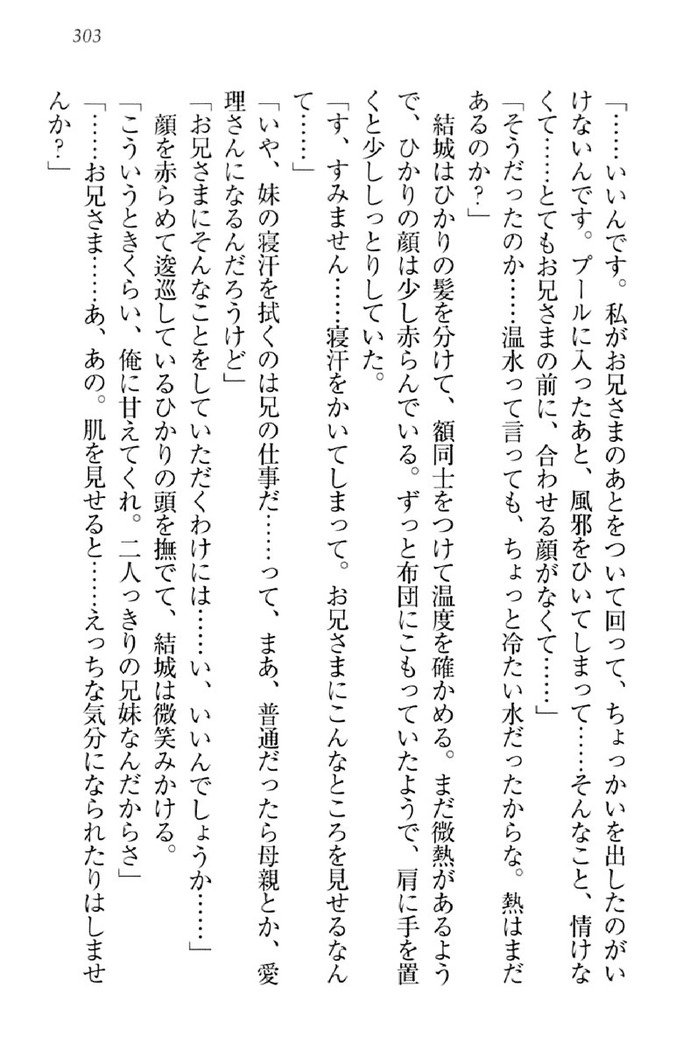 303
「……いいんです。私がお兄さまのあとをついて回って、ちょっかいを出したのがい
けないんです。プールに入ったあと、風邪をひいてしまって……そんなこと、情けな
くて……とてもお兄さまの前に、合わせる顔がなくて……」
「そうだったのか……温水って言っても、ちょっと冷たい水だったからな。熱はまだ
あるのか？」
　結城はひかりの髪を分けて、額同士をつけて温度を確かめる。まだ微熱があるよう
で、ひかりの顔は少し赤らんでいる。ずっと布団にこもっていたようで、肩に手を置
くと少ししっとりしていた。
「す、すみません……寝汗をかいてしまって。お兄さまにこんなところを見せるなん
て……」
「いや、妹の寝汗を拭くのは兄の仕事だ……って、まあ、普通だったら母親とか、愛
理さんになるんだろうけど」
「お兄さまにそんなことをしていただくわけには……い、いいんでしょうか……」
　顔を赤らめて逡巡しているひかりの頭を撫でて、結城は微笑みかける。
「こういうときくらい、俺に甘えてくれ。二人っきりの兄妹なんだからさ」
「……お兄さま……あ、あの。肌を見せると……えっちな気分になられたりはしませ
んか？」